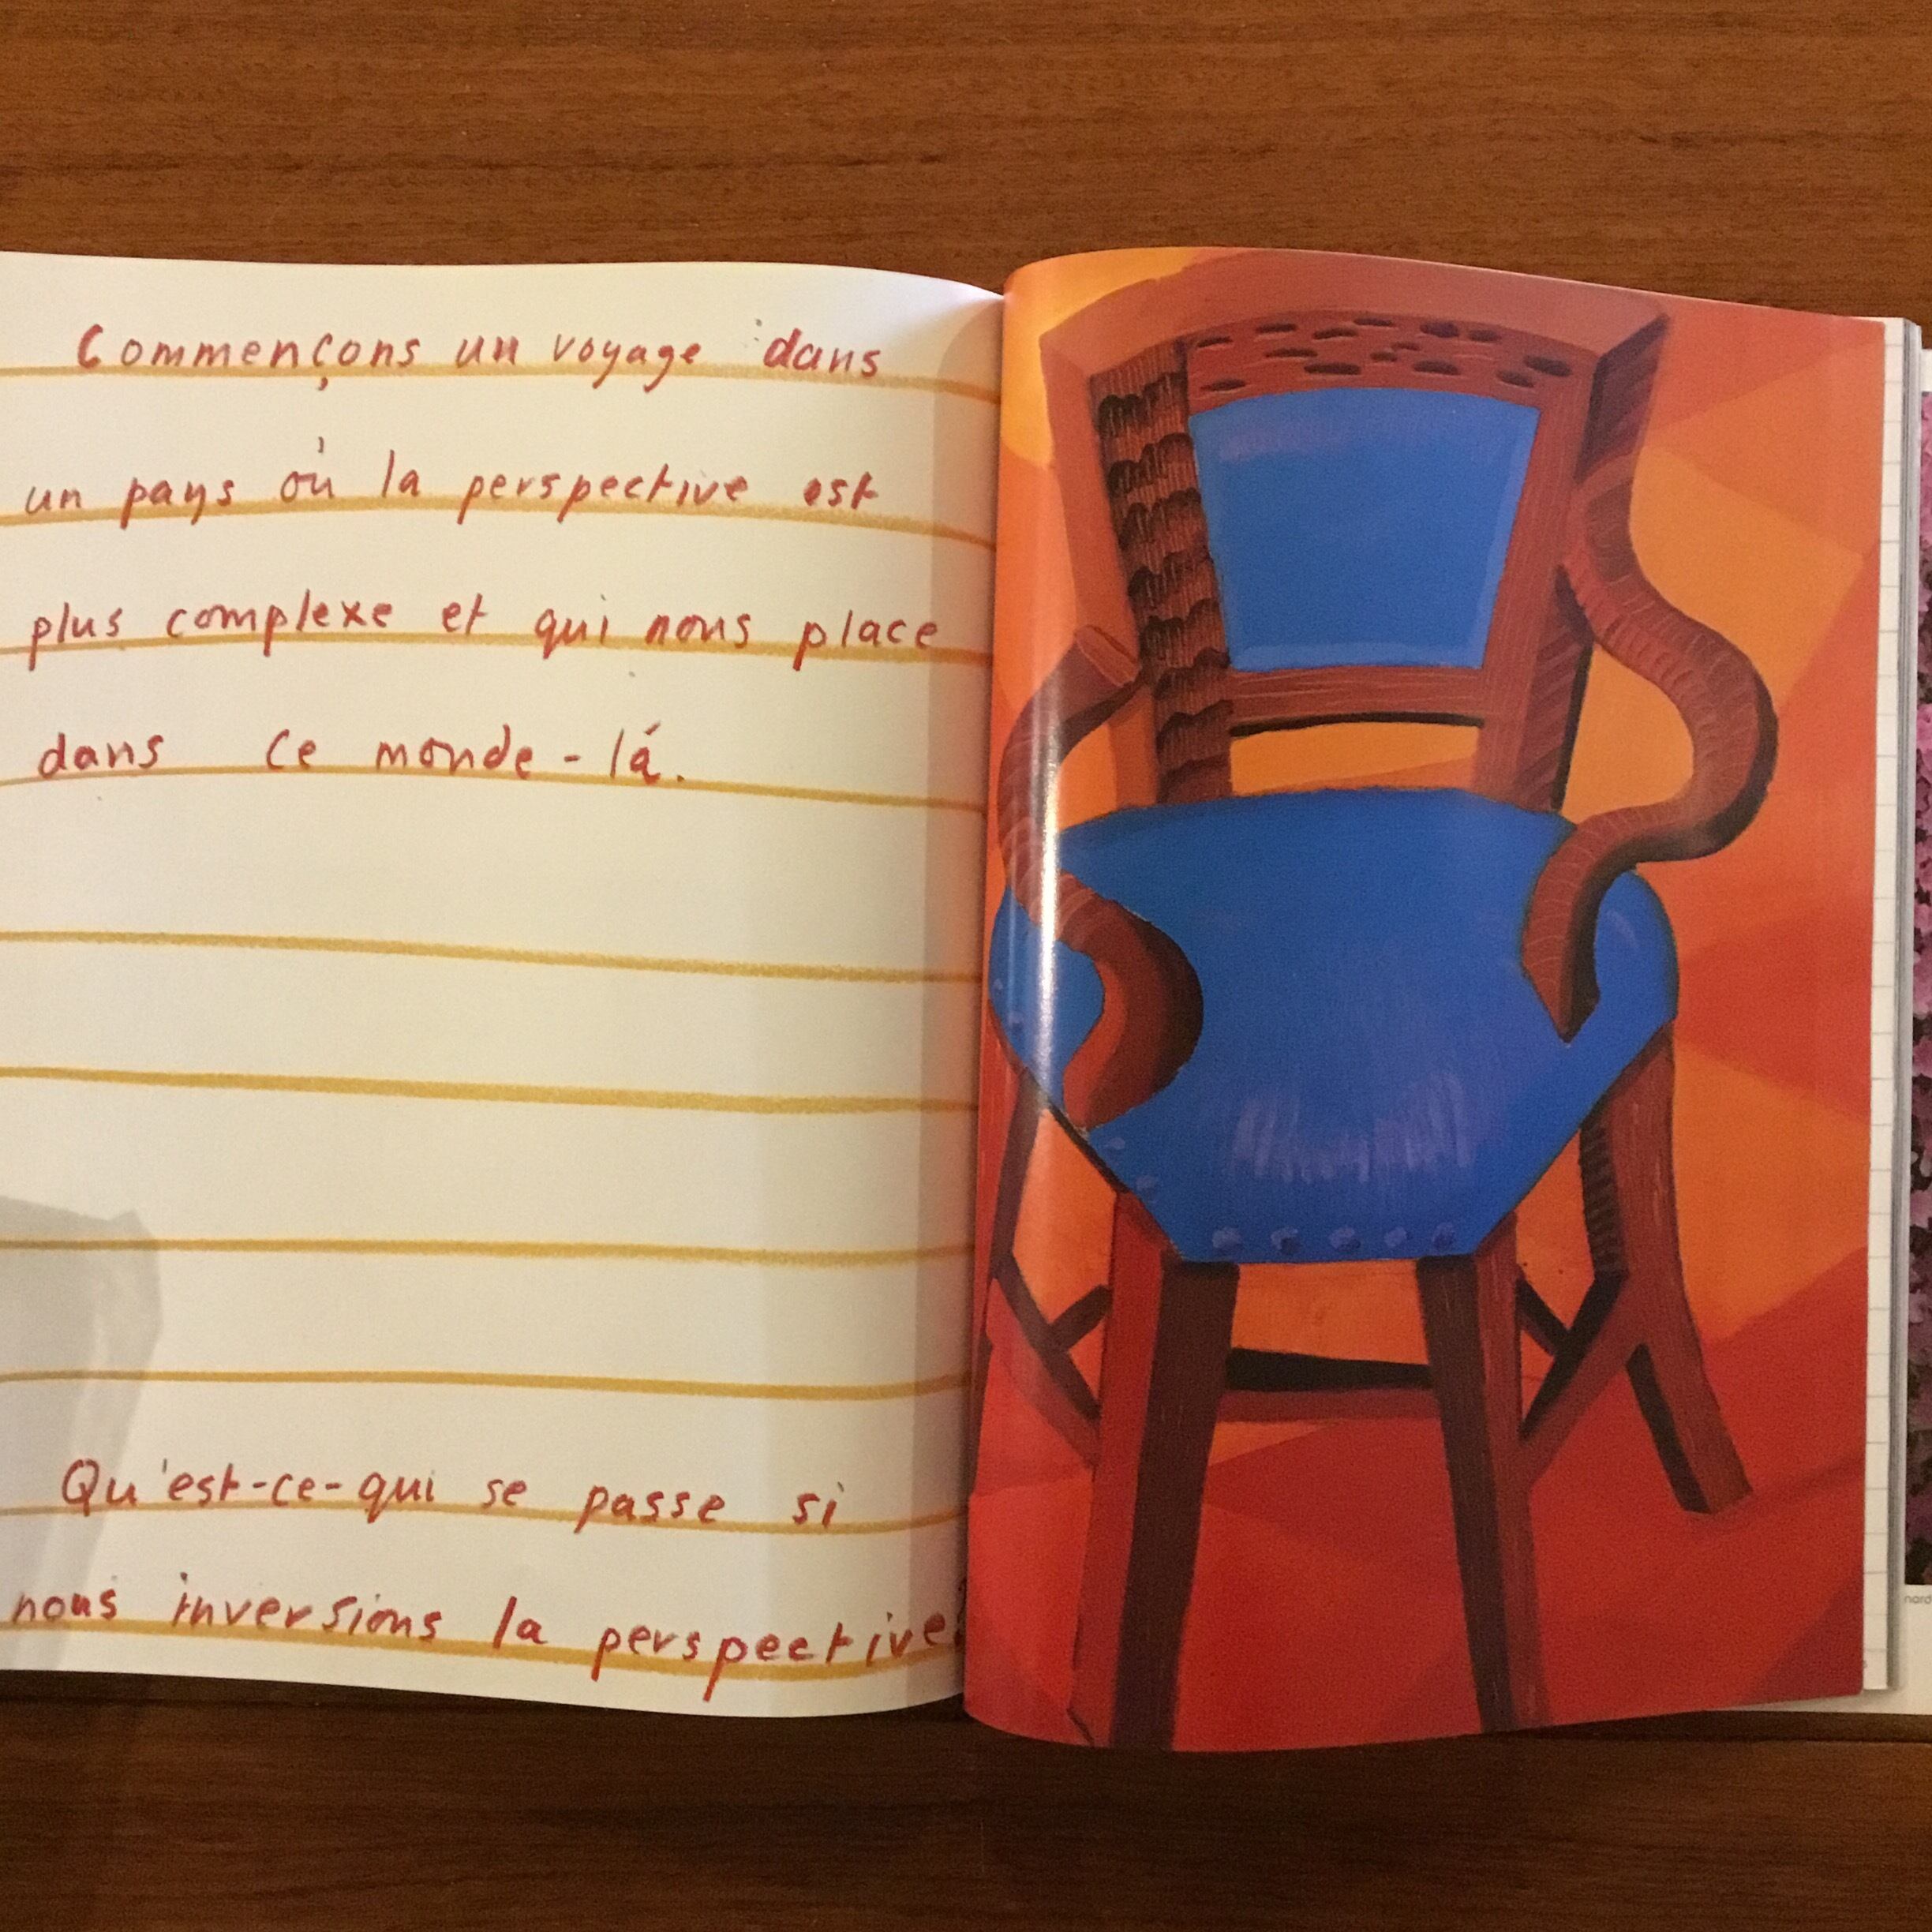 Commençons un voyage dans
un pays où la perspective est
plus complexe et qui nous place
dans ce monde-lá.
Qu'est-ce-qui se passe si
nous inversions la perspective